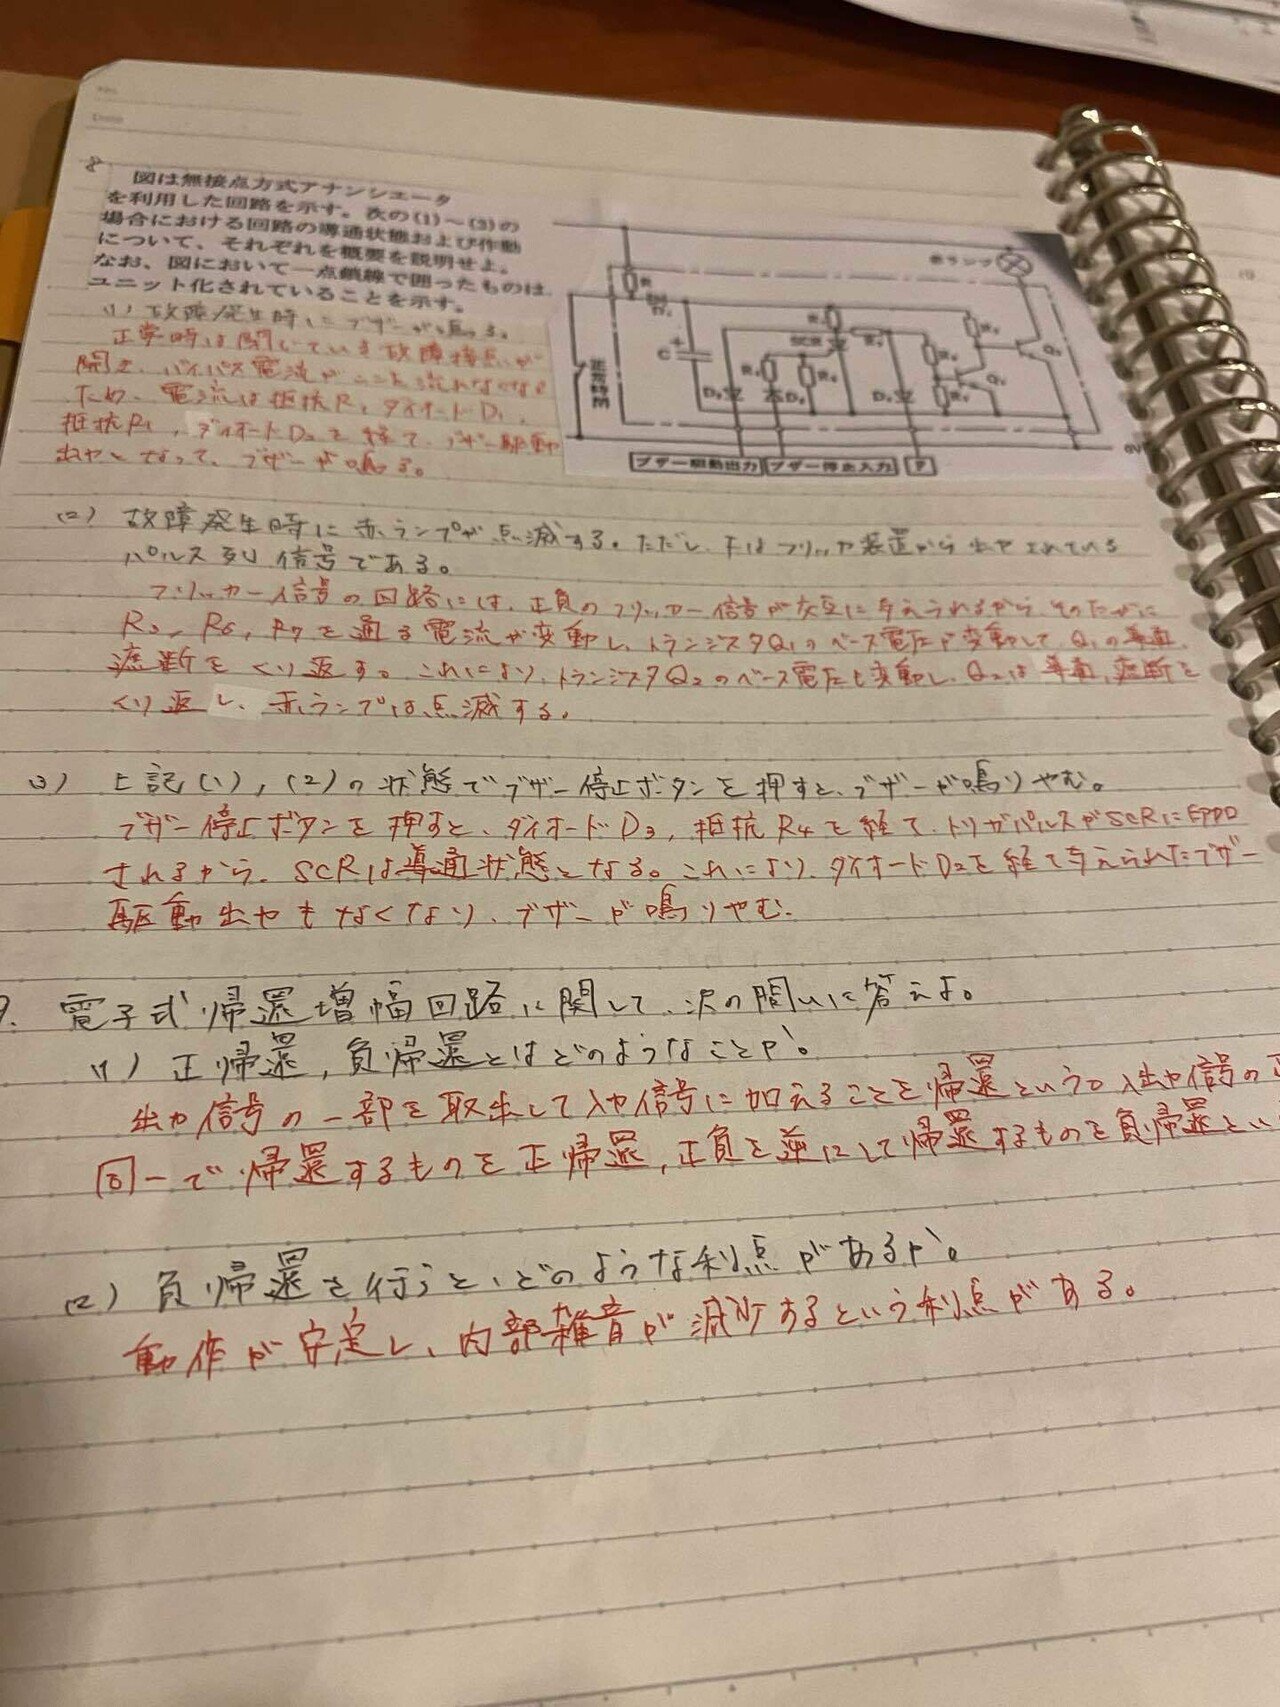 8
図は無接点方式アナンシエータ
を利用した回路を示す。次の(1)〜(3)の
場合における回路の導通状態および作動
について、それぞれを概要を説明せよ。
なお、図において一点鎖線で囲ったものは
ユニット化されていることを示す。
(1) 故障発生時にブザーが鳴る。
正常時は閉じている故障接点が
開き、バイパス電流がここを流れなくなる
ため、電流は抵抗R、ダイオードD₁、
抵抗R₁、ダイオードD₂を経て、ブザー駆動
出力となって、ブザーが鳴る。
赤ランプ
R
D₁
C
SCR
D₂
D₃
Q₂
Q₁
正常時閉
0V
ブザー駆動出力
ブザー停止入力
F
(2) 故障発生時に赤ランプが点滅する。ただし、Fはフリッカ装置から出力されている
パルス列信号である。
フリッカー信号の回路には、正負のフリッカー信号が交互に与えられるから、そのたびに
R₅、R₆、R₇を通る電流が変動し、トランジスタQ₁のベース電圧が変動して、Q₁の導通、
遮断をくり返す。これにより、トランジスタQ₂のベース電圧も変動し、Q₂は導通、遮断を
くり返し、赤ランプは点滅する。
(3) 上記(1), (2)の状態でブザー停止ボタンを押すと、ブザーが鳴りやむ。
ブザー停止ボタンを押すと、ダイオードD₃、抵抗R₄を経て、トリガパルスがSCRに印加
されるから、SCRは導通状態となる。これにより、ダイオードD₂を経て与えられたブザー
駆動出力もなくなり、ブザーが鳴りやむ。
9. 電子式帰還増幅回路に関して、次の問いに答えよ。
(1) 正帰還, 負帰還とはどのようなことか。
出力信号の一部を取出して入力信号に加えることを帰還という。入出力信号の正
同一で帰還するものを正帰還, 正負を逆にして帰還するものを負帰還とい
(2) 負帰還を行うと、どのような利点があるか。
動作が安定し、内部雑音が減少するという利点がある。